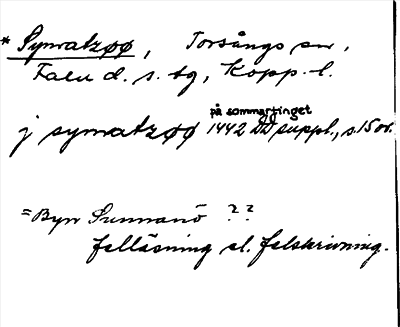 * Symatzøø, Torsångs sn,
Falu d. s. tg, Kopp. l.
på sommartinget
j symatzøø 1442 DD suppl., s. 15 or.
= Byn Sunnanö ??
felläsning el. felskrivning.